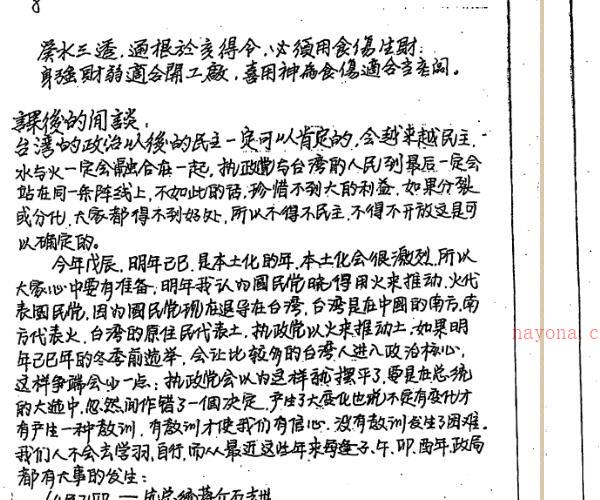 8
癸水三透,通根於亥得令,必須用食傷生財:
身强財弱適合開工廠,喜用神為食傷適合当老闆。
課後的闲談:
台湾的政治以後的民主一定可以肯定的,会越来越民主,
水与火一定会融合在一起,执政党与台湾的人民到最后一定会
站在同一条阵线上,不如此的话,珍惜不到大的利益,如果分裂
或分化,大家都得不到好处,所以不得不民主,不得不开放这是可
以确定的。
今年戊辰,明年己巳,是本土化的年,本土化会很激烈,所以
大家心中要有准备,明年我认为國民党晓得用火来推动,火代
表國民党,因为國民党现在退导在台湾,台湾是在中國的南方,南
方代表火,台湾的原住民代表土,执政党以火来推动土,如果明
年己巳年的冬季前选举,会让比较多的台湾人进入政治核心,
这样争端会少一点;执政党会以为这样就摆平了,要是在总统
的大选中,忽然间作错了一個决定,产生了大变化也説不定有变化才
有产生一种教训,有教训才使我们有信心,没有教训发生了困难,
我们人不会去学习,自行,而从最近这些年来每逢子、午、卯、酉年,政局
都有大事的发生:
nayona.c